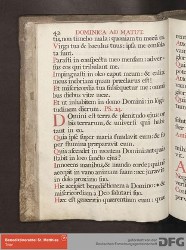 42 DOMINICA AD MATUT.
tis, non timebo mala: quoniam tu mecū es.
Virga tua & baculus tuus: ipsa me consola-
ta sunt.
Parasti in conspectu meo mensam: adver-
sus eos qui tribulant me.
Impinguasti in oleo caput meum: & calix
meus inebrians quàm præclarus est!
Et misericordia tua subsequetur me: omni-
bus diebus vitæ meæ.
Et ut inhabitem in domo Domini: in longi-
tudinem dierum. Ps. 23.
Domini est terra & plenitudo ejus: or-
bis terrarum, & universi qui habi-
tant in eo.
Quia ipse super maria fundavit eum: & su-
per flumina præparavit eum.
Quis ascendet in montem Domini: aut quis
stabit in loco sancto ejus?
Innocens manibus & mundo corde: qui nō
accepit in vano animam suam: nec juravit
in dolo proximo suo.
Hic accipiet benedictionem à Domino: &
misericordiam à Deo salutari suo.
Hæc est generatio quærentium eum: quæ-
Benediktinerabtei St. Matthias
Trier
DFG